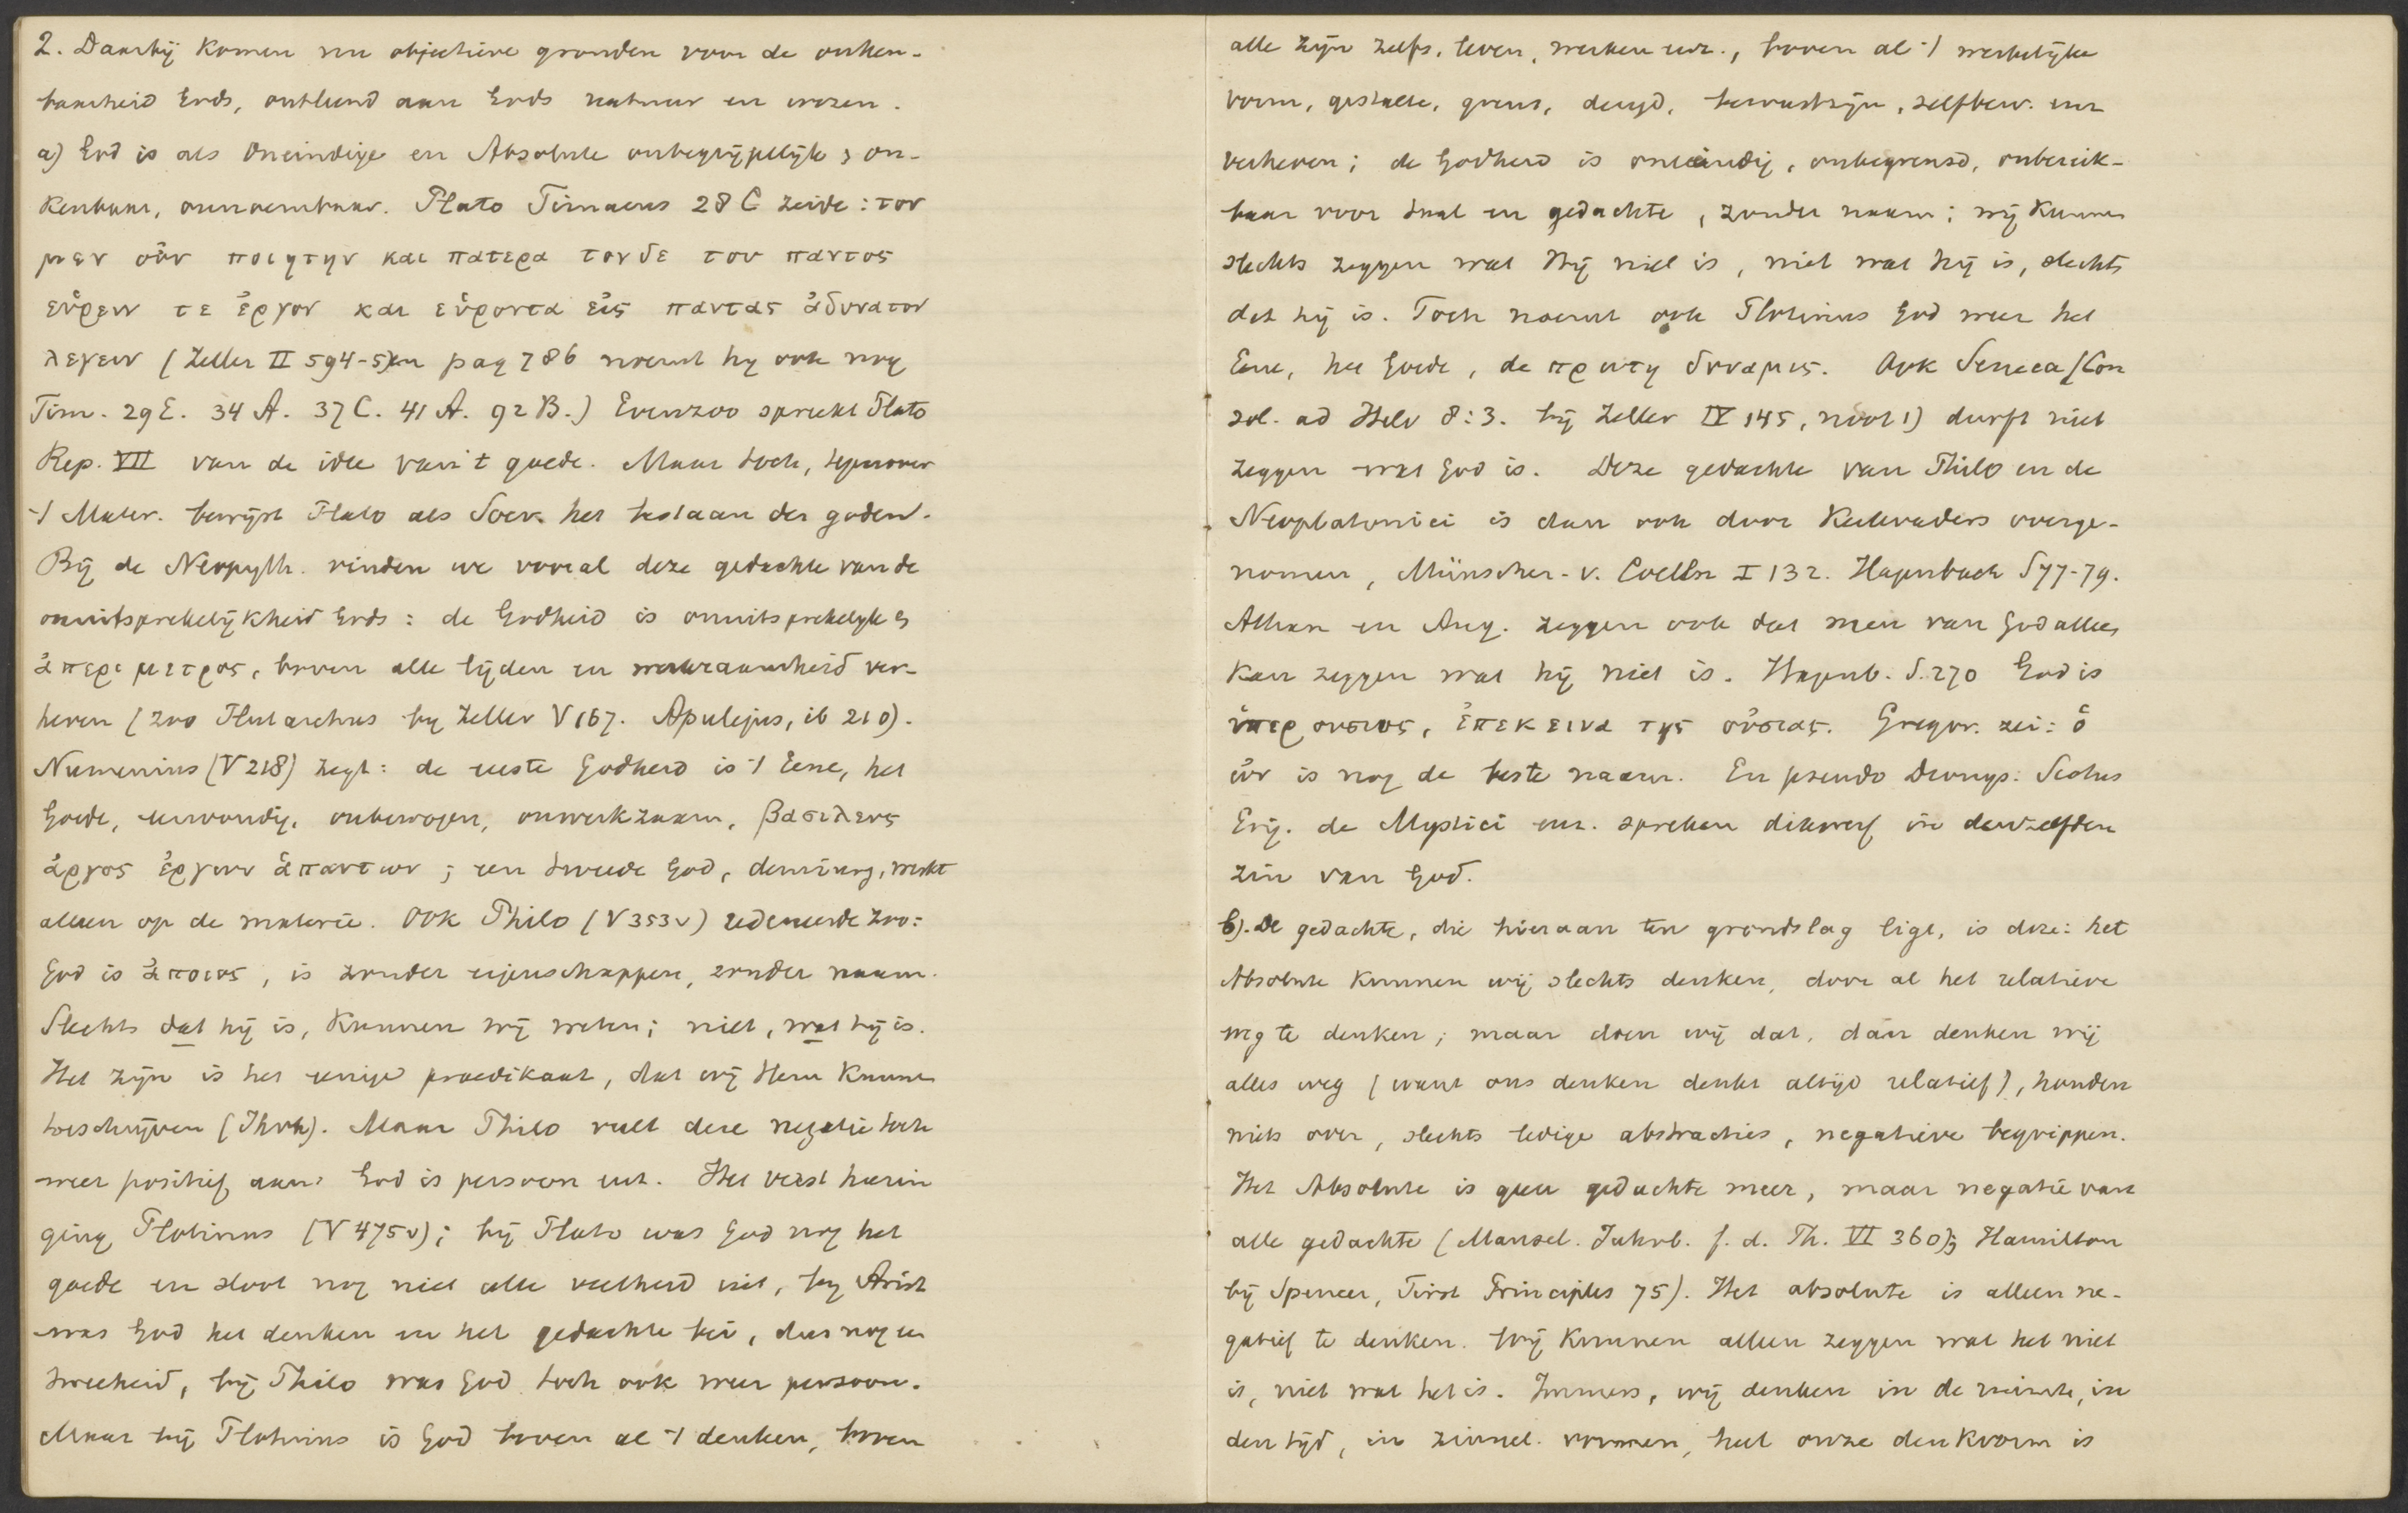 2. Daarbij komen nu objectieve gronden voor de onken-
baarheid Gods, ontleend aan Gods natuur en wezen.
a) God is als Oneindige en Absolute onbegrijpelijk, on-
kenbaar, onnoembaar. Plato Timaeus 28 C zeide: τον
μεν οὐν ποιητην και πατερα τονδε του παντος
εὑρειν τε ἐργον και εὑροντα εἰς παντας ἀδυνατον
λεγειν (Zeller II 594-5) en pag 786 noemt hy ook nog
Tim. 29 E. 34 A. 37 C. 41 A. 92 B.) Evenzoo spreekt Plato
Rep. VII van de idee van 't goede. Maar toch, tegenover
't Mater. bewijst Plato als Socr. het bestaan der goden.
Bij de Neopyth. vinden we vooral deze gedachte van de
onuitsprekelijkheid Gods: de Godheid is onuitsprekelyk &
ἀπεριμετρος, boven alle tijden en werkzaamheid ver-
heven (zoo Plutarchus by Zeller V 167. Apulejus, ib 210).
Numenius (V 218) zegt: de eerste Godheid is 't Eene, het
Goede, eenvoudig, onbewogen, onwerkzaam, βασιλευς
ἀργος ἐργων ἁπαντων; een tweede God, demiurg, werkt
alleen op de materie. Ook Philo (V 353v) redeneerde zoo:
God is ἀποιος, is zonder eigenschappen, zonder naam.
Slechts dat hij is, kunnen wij weten; niet, wat hij is.
Het zijn is het eenige praedikaat, dat wij Hem kunnen
toeschrijven (Jhvh). Maar Philo vult deze negatie toch
weer positief aan: God is persoon enz. Het verst hierin
ging Plotinus (V 475v); bij Plato was God nog het
goede en sloot nog niet alle veelheid uit, by Arist
was God het denken en het gedachte bei, dus nog een
tweeheid, bij Philo was God toch ook weer persoon.
Maar bij Plotinus is God boven al 't denken, boven
alle zijn zelfs, leven, werken enz., boven al 't werkelijke
vorm, gestalte, grens, deugd, bewustzijn, zelfbew. enz
verheven; de Godheid is oneindig, onbegrensd, onbereik-
baar voor taal en gedachte, zonder naam; wij kunnen
slechts zeggen wat Hij niet is, niet wat hij is, slechts
dat hij is. Toch noemt ook Plotinus God weer het
Eene, het Goede, de πρωτη δυναμις. Ook Seneca (Con
sol. ad Helv 8:3. bij Zeller IV 145, noot 1) durft niet
zeggen wat God is. Deze gedachte van Philo en de
Neoplatonici is dan ook door Kerkvaders overge-
nomen, Münscher-v. Coelln I 132. Hagenbach S 77-79.
Athan en Aug. zeggen ook dat men van God alles
kan zeggen wat hij niet is. Hagenb. S. 270 God is
ὑπερουσιος, ἐπεκεινα της οὐσιας. Gregor. zei: ὁ
ὠν is nog de beste naam. En pseudo Dionys: Scotus
Erig. de Mystici enz. spreken dikwerf in denzelfden
zin van God.
b). De gedachte, die hieraan ten grondslag ligt, is deze: het
Absolute kunnen wij slechts denken, door al het relatieve
weg te denken; maar doen wij dat, dan denken wij
alles weg (want ons denken denkt altijd relatief), houden
niets over, slechts ledige abstracties, negatieve begrippen.
Het Absolute is geen gedachte meer, maar negatie van
alle gedachte (Mansel. Jahrb. f. d. Th. VI 360); Hamilton
bij Spencer, First Principles 75). Het absolute is alleen ne-
gatief te denken. Wij kunnen alleen zeggen wat het niet
is, niet wat het is. Immers, wij denken in de ruimte, in
den tijd, in zinnel. vormen, heel onze denkvorm is